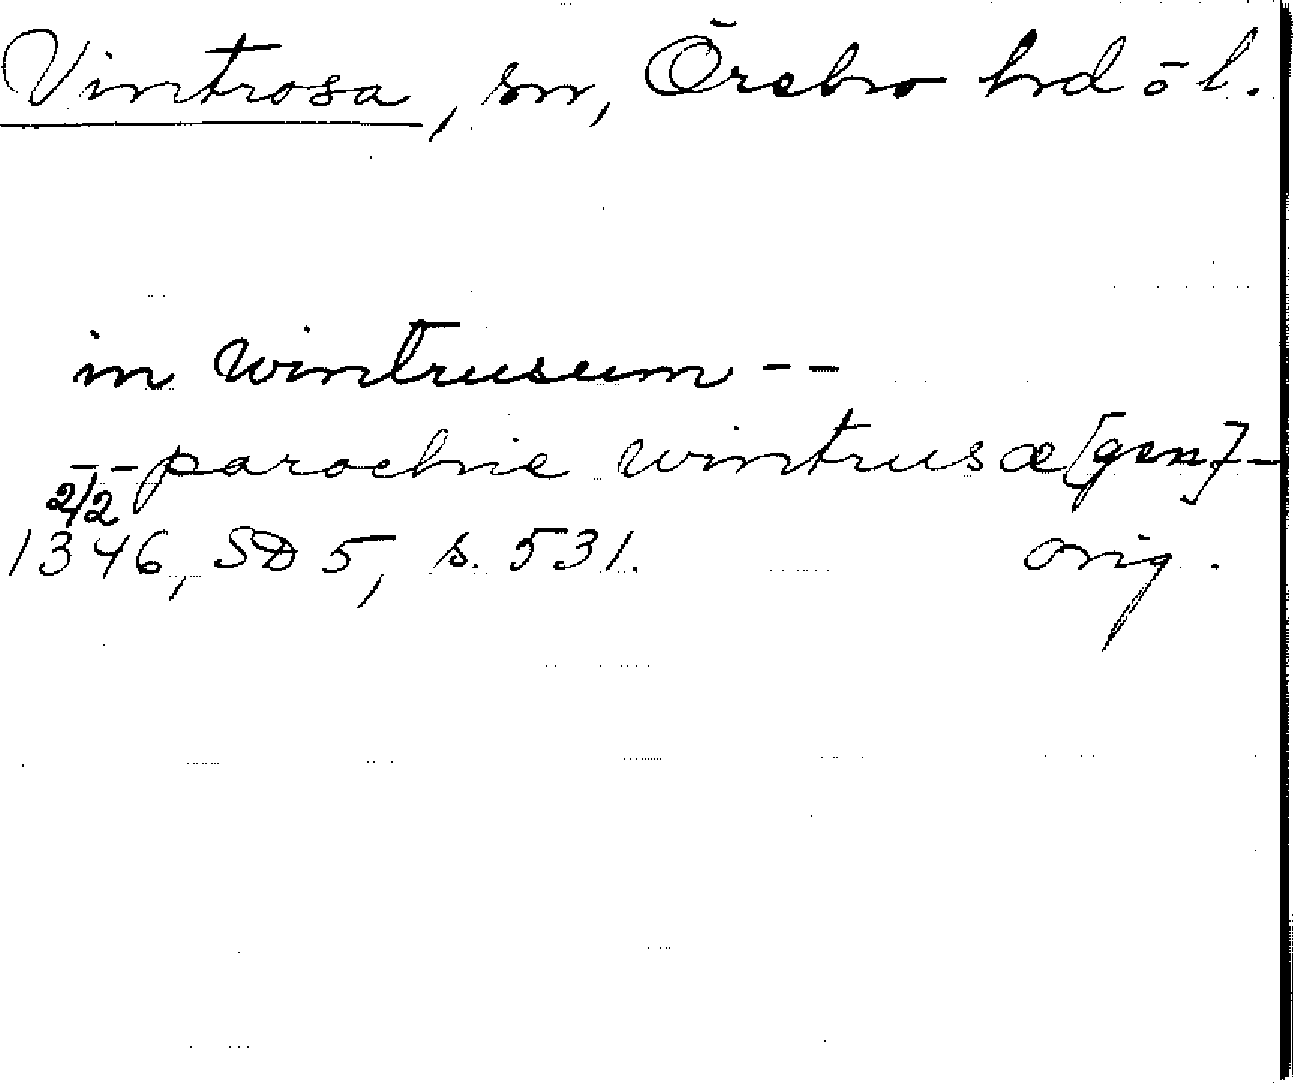 Vintrosa, sn, Örebro hd ö l.
in wintrusum --
-- parochie wintrusæ [gen] -
2/2
1346, SD 5, s. 531. orig.